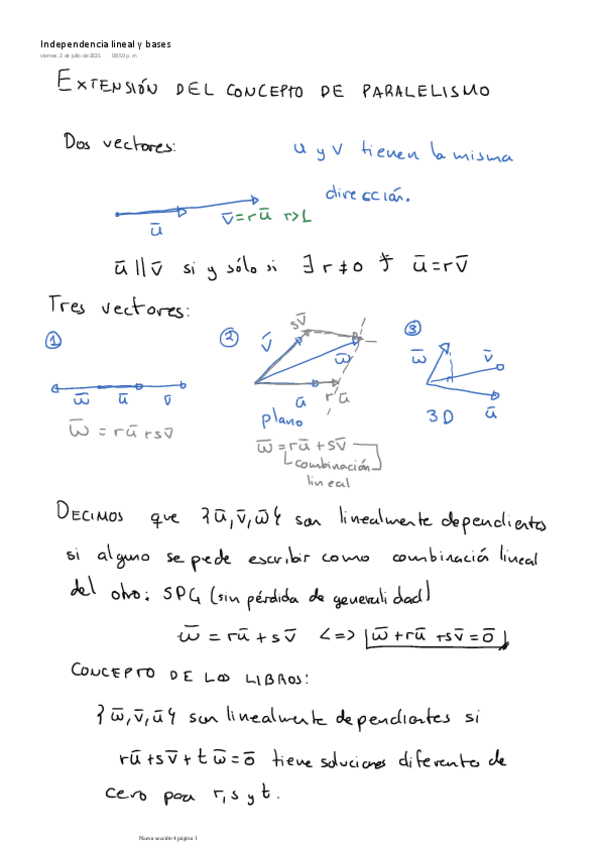 Independencia lineal y bases
viernes, 2 de julio de 2021 08:50 p. m.
EXTENSIÓN DEL CONCEPTO DE PARALELISMO
Dos vectores:
u y v tienen la misma
dirección.
ū
v̄=rū r>1
ū || v̄ si y sólo si ∃ r≠0 ⊅ ū=rv̄
Tres vectores:
①
w̄ ū v̄
w̄ = rū+sv̄
②
sv̄
v̄
w̄
ū rū
plano
w̄=rū+sv̄
combinación
lineal
③
w̄ v̄
3D ū
DECIMOS que {ū,v̄,w̄} son linealmente dependientes
si alguno se pede escribir como combinación lineal
del otro: SPG (sin pérdida de generalidad)
w̄ = rū+sv̄ <=> w̄+rū+sv̄=ō
CONCEPTO DE LOS LIBROS:
{w̄,v̄,ū} son linealmente dependientes si
rū+sv̄+tw̄=ō tiene soluciones diferente de
cero para r,s y t.
Nueva sección 4 página 1